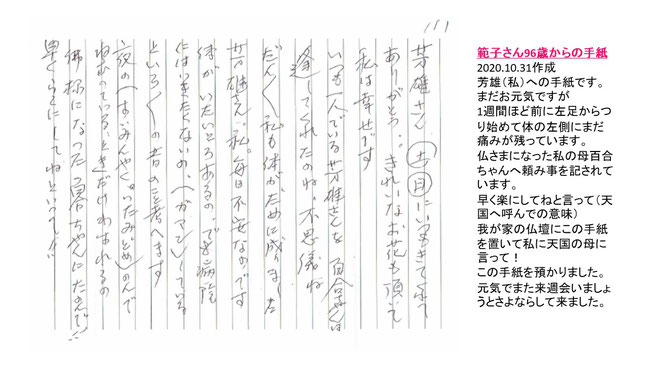 芳雄さん 土日にいつもきてくれて
ありがとう、きれいなお花も頂いて
私は幸せです
いつも一人でいる芳雄さんを 百合ちゃんは
逢してくれたのね、不思儀ね
だんだん私も体がだめに成りました
芳雄さん、私毎日不安なのです
体がいたいところあるの、でも病院
にはいきたくないの、(ガマン)している
といろいろの昔のこと考へます
夜の(すいみんやく。いたみどめ)のんで
ねむっている、ときだけわすれるの
佛様になった百合ちゃんにたのんで
早くらくにしてねといって
範子さん96歳からの手紙
2020.10.31作成
芳雄(私)への手紙です。
まだお元気ですが
1週間ほど前に左足からつ
り始めて体の左側にまだ
痛みが残っています。
仏さまになった私の母百合
ちゃんへ頼み事を記されて
います。
早く楽にしてねと言って(天
国へ呼んでの意味)
我が家の仏壇にこの手紙
を置いて私に天国の母に
言って!
この手紙を預かりました。
元気でまた来週会いましょ
うとさよならして来ました。